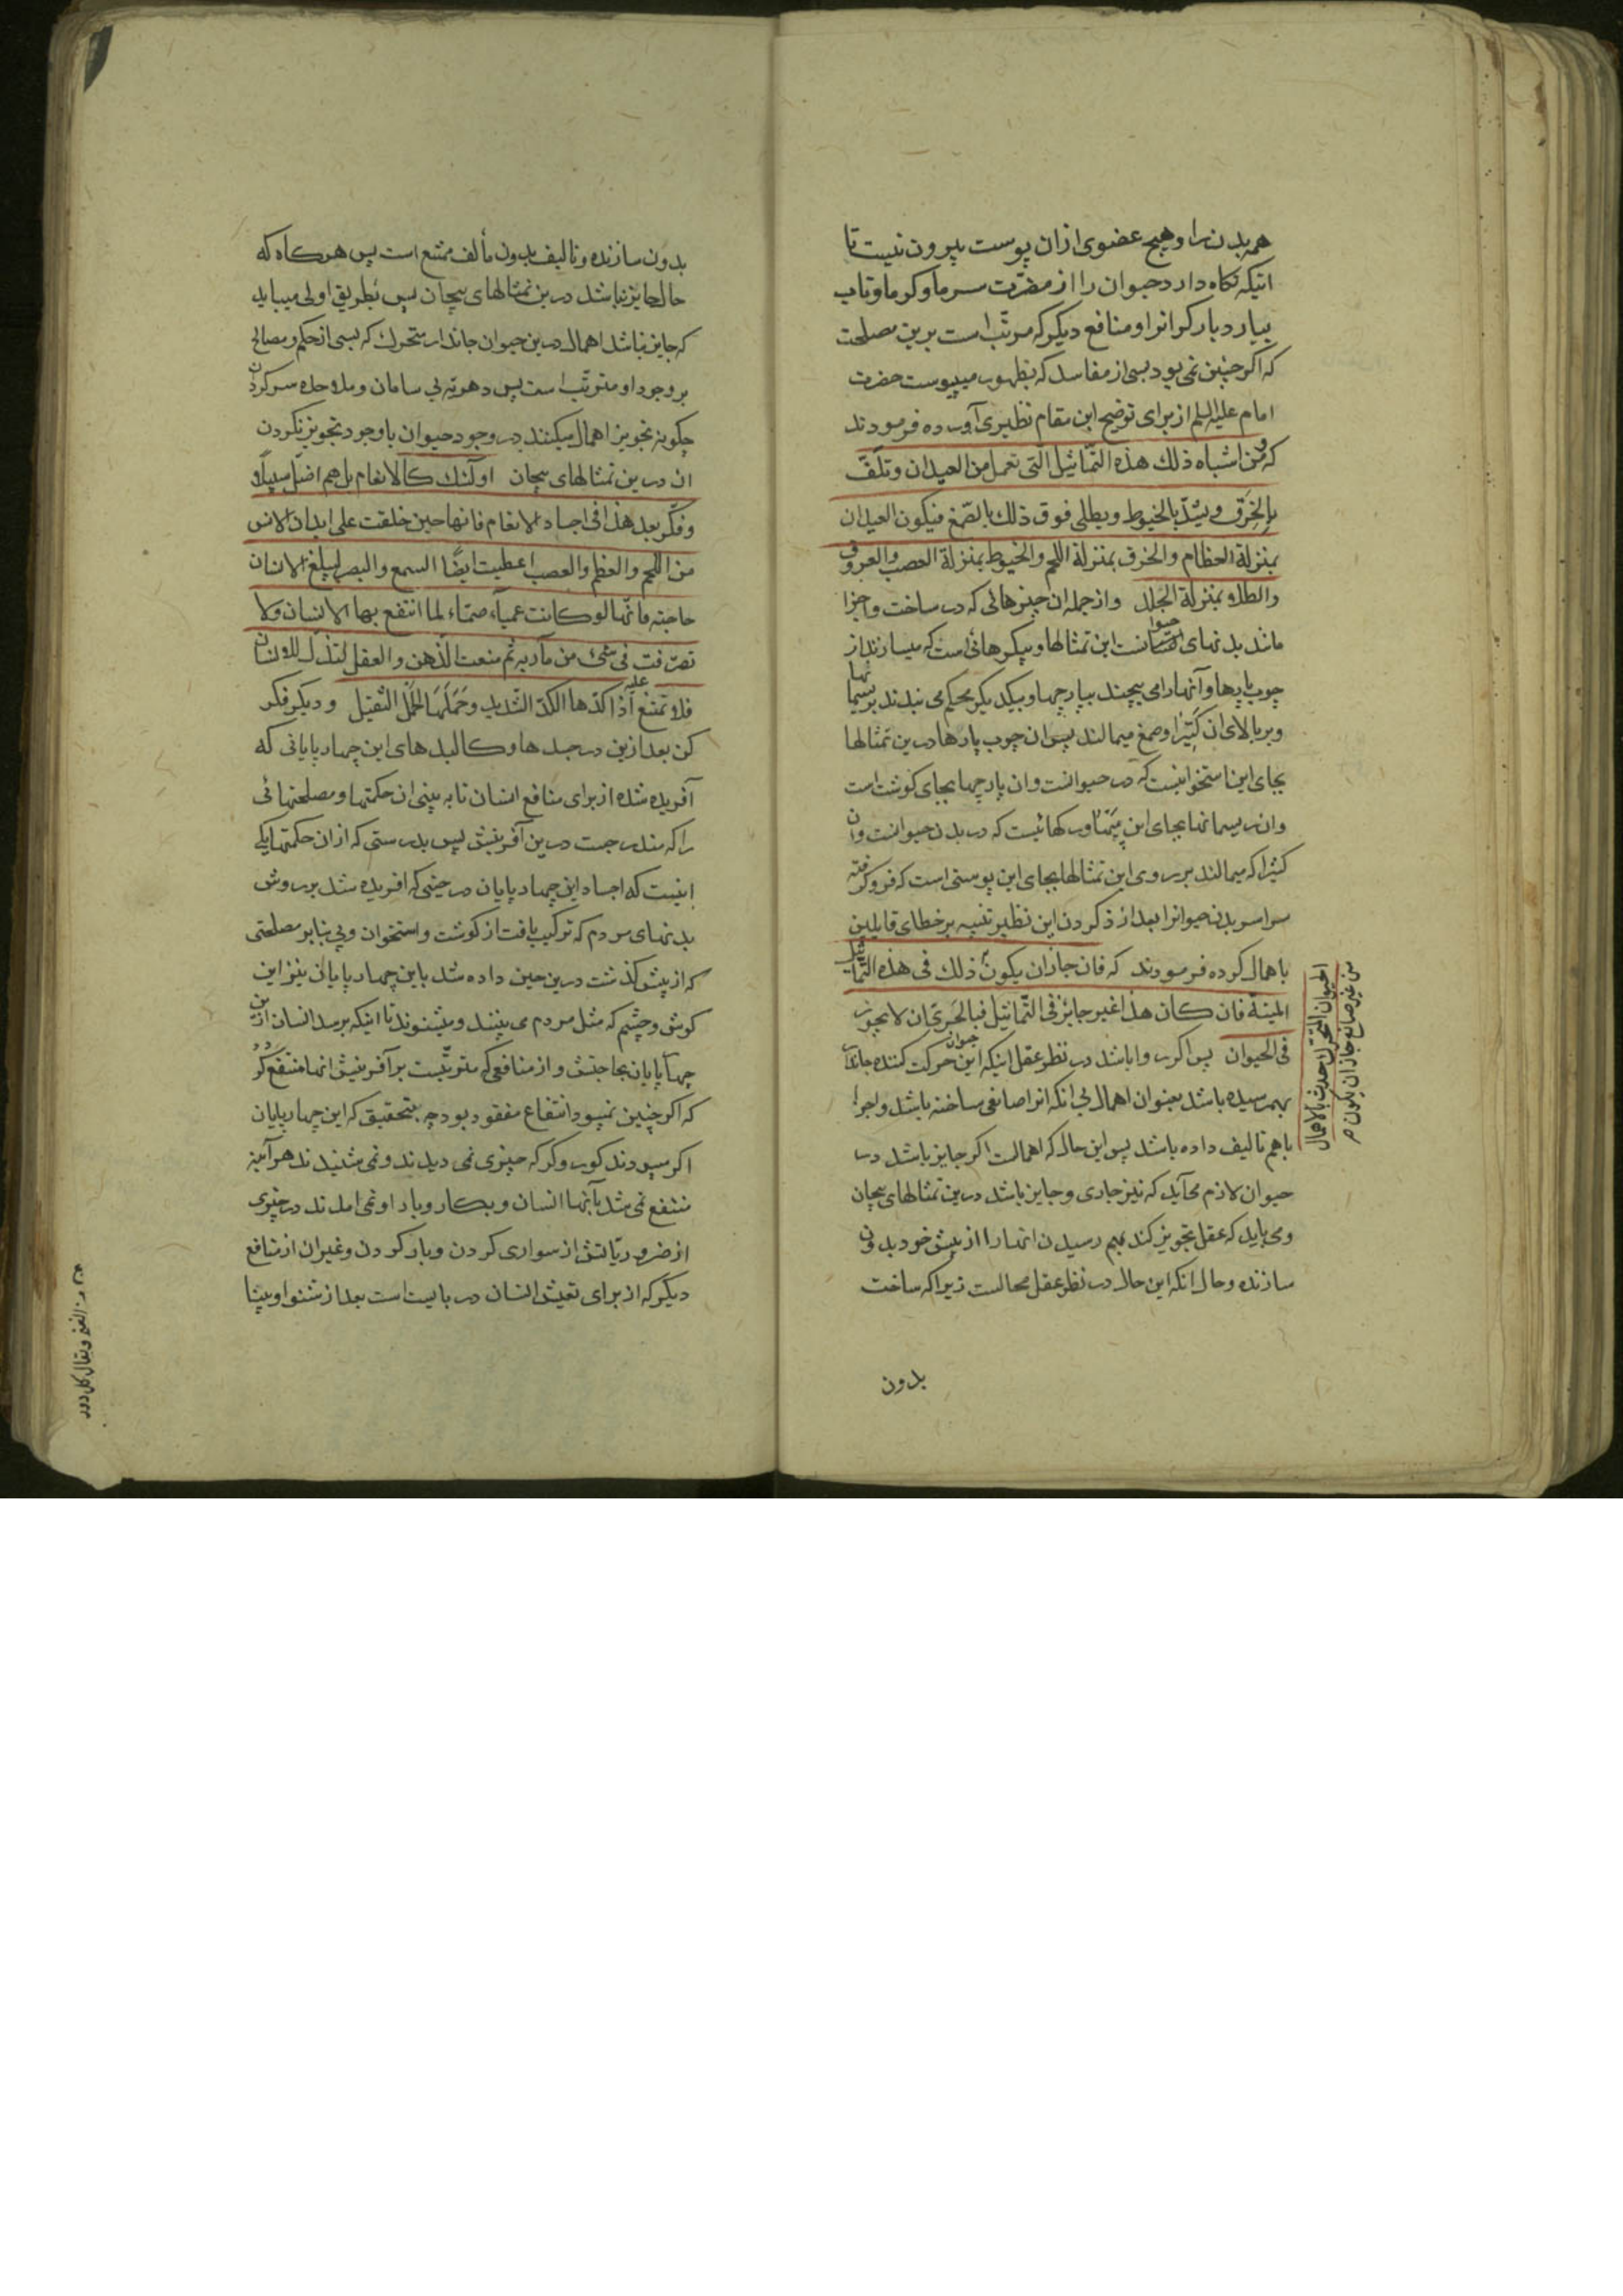 همه بدن را و هیچ عضوی از ان پوست بیرون نیست تا
اینکه نگاه دارد حیوان را از مضرت سرما و کرما و تاب
بیارد بار کرانرا و منافع دیکر که مرتّب است برین مصلحت
که اکر چنین نمی بود بسی از مفاسد که بظهور میپیوست حضرت
امام علیه السلم از برای توضیح این مقام نظیری آورده فرمودند
که و من اشباه ذلك هذه التّماثیل التی تعمل من العیدان و تلفّ
بالخِرَق و یشدّ بالخیوط و یطلی فوق ذلك بالصّمغ فیکون العیدان
بمنزلة العظام والخرق بمنزلة اللحم والخیوط بمنزلة العصب والعروق
والطلاء بمنزلة الجلد و از جمله ان چیزهائی که در ساخت و اجزا
مانند بدنهای حیوانست این تمثالها و پیکرهائی است که میسازند از
چوب پارها و آنها را می پیچند بپارچها و بیکدیکر محکم می بندند بریسمانها
و بر بالای ان کتیرا و صمغ میمالند پس ان چوب پارها درین تمثالها
بجای این استخوانیست که در حیوانست و ان پارچها بجای کوشت است
و ان ریسمانها بجای این پَی و رکهائیست که در بدن حیوانست و ان
کتیرا که میمالند بر روی این تمثالها بجای این پوستی است که فرو کرفته
سراسر بدن حیوانرا بعد از ذکر کردن این نظیر تنبیه بر خطای قایلین
باهمال کرده فرمودند که فان جاز ان یکون ذلك فی هذه التماثیل
المیتة فان کان هذا غیر جائز فی التّماثیل فبالحَریّ ان لا یجوز
فی الحیوان پس اکر روا باشد در نظر عقل اینکه این حیوان حرکت کننده جاندار
بهم رسیده باشد بعنوان اهمال بی انکه انرا صانعی ساخته باشد و اجزا
باهم تالیف داده باشد پس این حال که اهمالست اکر جایز باشد در
حیوان لازم می آید که نیز جاری و جایز باشد درین تمثالهای بیجان
و می باید که عقل تجویز کند بهم رسیدن انها را از پیش خود بدون
سازنده و حال انکه این حال در نظر عقل محالست زیرا که ساخت
بدون
الحیوان المتحرّك حدث بالاهمال
من غیر صانع جاز ان یکون صر
بدون سازنده و تالیف بدون مألف ممتنع است پس هر کاه که
حال جایز نباشد درین تمثالهای بیجان پس بطریق اولی میباید
که جایز نباشد اهمال درین حیوان جاندار متحرك که بسی از حکم و مصالح
بر وجود او مترتّب است پس دهریّه بی سامان و ملاحده سرکردان
چکونه تجویز اهمال میکنند در وجود حیوان با وجود تجویز نکردن
ان درین تمثالهای بیجان اولئك کالانعام بل هم اضلّ سبیلاً و
و فکّر بعد هذا فی اجساد الانعام فانها حین خلقت علی ابدان الانس
من اللحم والعظم والعصب اعطیت ایضًا السمع والبصر لیبلغ الانسان
حاجته فانّها لو کانت عمیاً، صمّاء لما انتفع بها الانسان ولا
تصرّفت فی شئ من مآربه ثم منعت الذهن والعقل لتذلّ للانسان
فلا تمتنع علیه اذا کدّها الکدّ الشدید و حَمَلَها الحَمَل الثقیل و دیکر فکر
کن بعد ازین در جسدها و کالبدهای این چهار پایانی که
آفریده شده از برای منافع انسان تا به بینی ان حکمتها و مصلحتهائی
را که مندرجست درین آفرینش پس بدرستی که از ان حکمتها یکی
اینست که اجساد این چهار پایان در حینی که افریده شد بر روش
بدنهای مردم که ترکیب یافت از کوشت و استخوان و پی بنابر مصلحتی
که از پیش کذشت درین حین داده شد باین چهار پایانی نیز این
کوش و چشم که مثل مردم می بینند و میشنوند تا اینکه برسد انسان ازین
چهار پایان بحاجتش و از منافعی که مترتّبست بر آفرینش انها منتفع کردد
که اکر چنین نمیبود انتفاع مفقود بود چه بتحقیق که این چهار پایان
اکر میبودند کور و کر که چیزی نمی دیدند و نمی شنیدند هر آینه
منتفع نمی شد بآنها انسان و بکار و بار او نمی امدند در چیزی
از ضروریّاتش از سواری کردن و بار کردن و غیر ان از منافع
دیکر که از برای تعیش انسان در بایست است بعد از شنوا و بینا